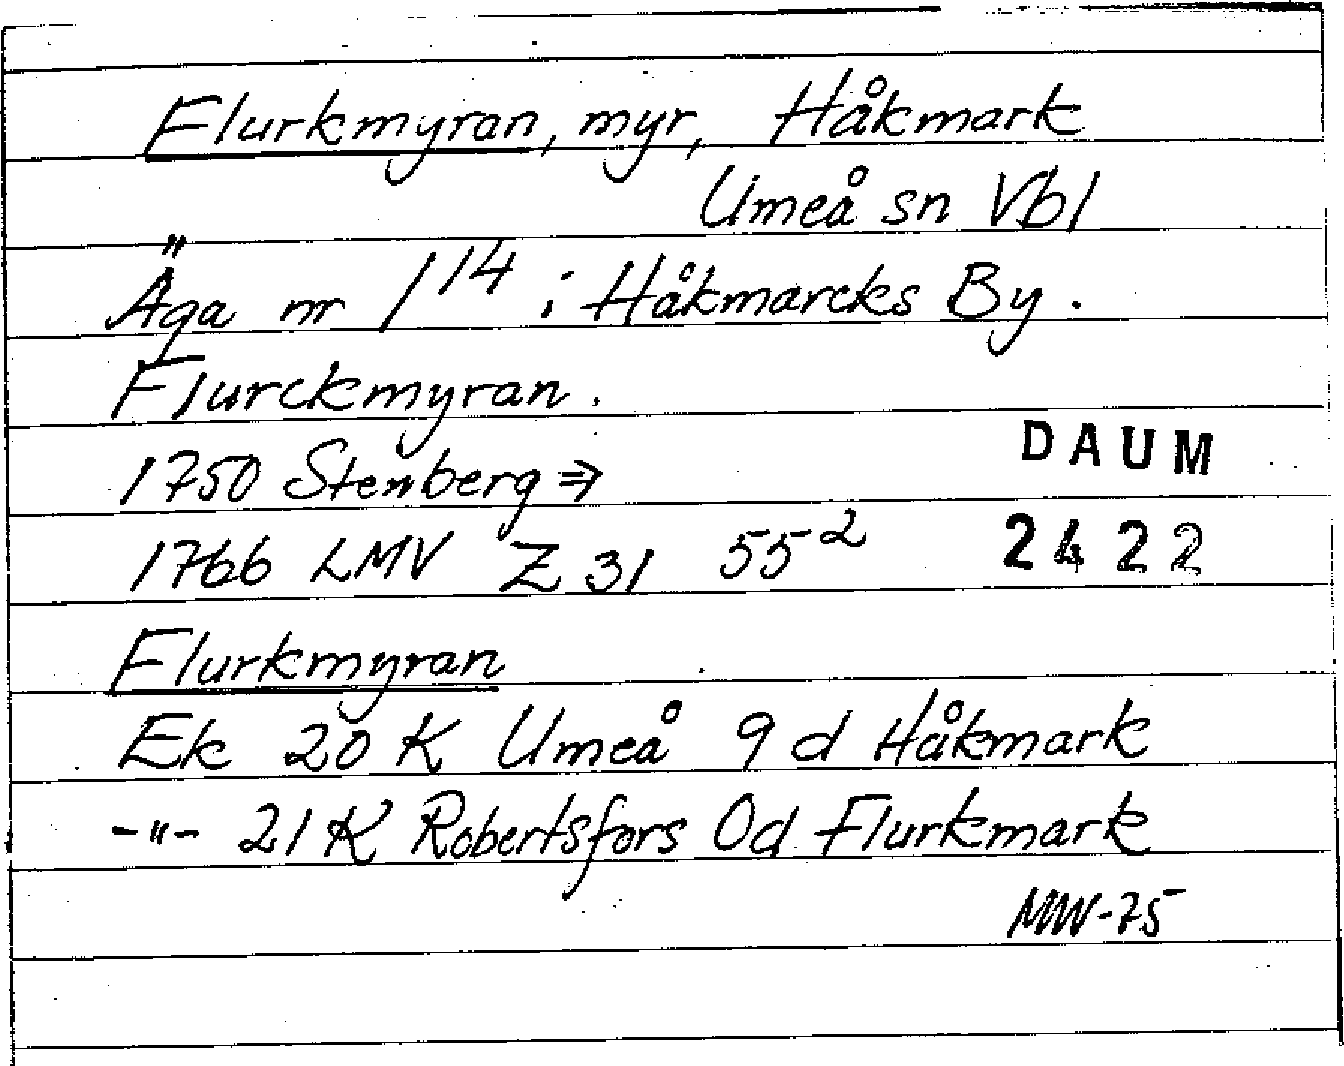 Flurkmyran, myr, Håkmark
Umeå sn Vbl
Äga nr 1 14 i Håkmarcks By.
Flurckmyran.
1750 Stenberg ⇒
DAUM
1766 LMV Z 31 55²
2422
Flurkmyran
Ek 20 K Umeå 9 d Håkmark
-"- 21 K Robertsfors 0d Flurkmark
MW-75